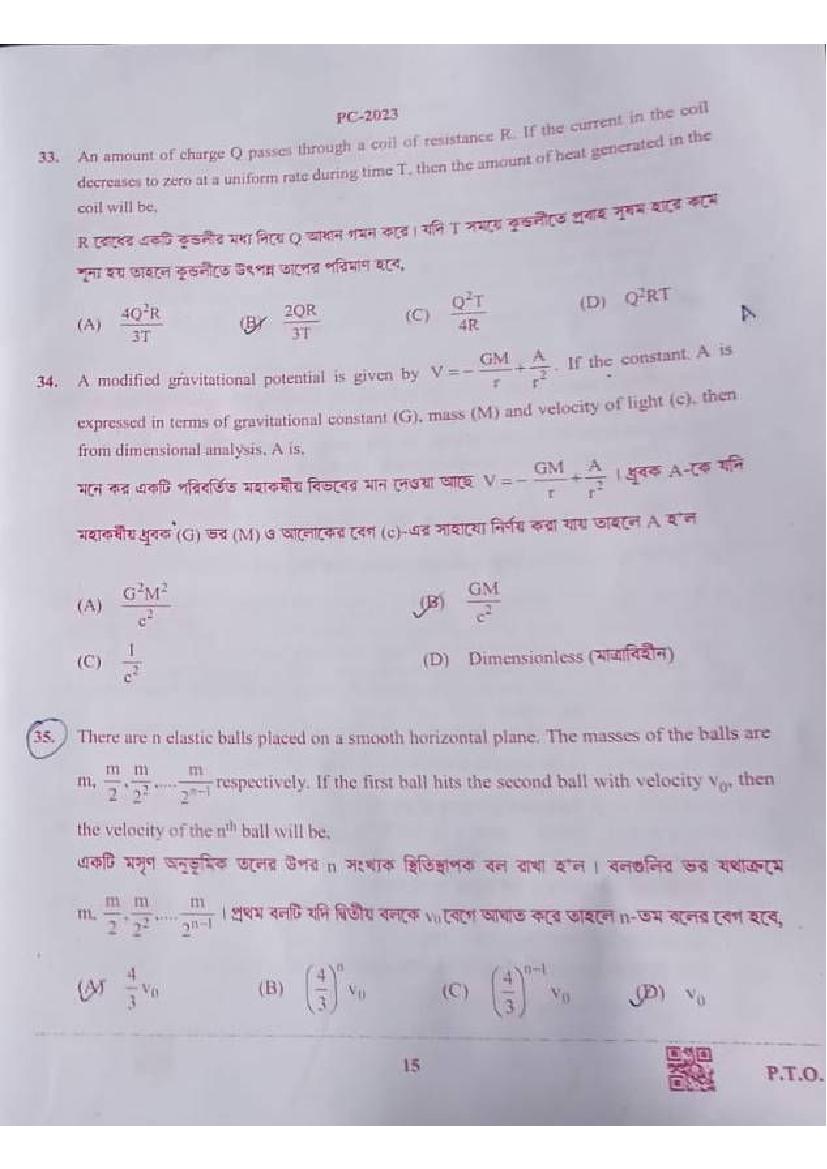 PC-2023
33. An amount of charge Q passes through a coil of resistance R. If the current in the coil
decreases to zero at a uniform rate during time T, then the amount of heat generated in the
coil will be,
R রোধের একটি কুন্ডলীর মধ্য দিয়ে Q আধান গমন করে। যদি T সময়ে কুন্ডলীতে প্রবাহ সুষম হারে কমে
শূন্য হয় তাহলে কুন্ডলীতে উৎপন্ন তাপের পরিমাণ হবে,
(A) 4Q²R/3T (B) 2QR/3T (C) Q²T/4R (D) Q²RT A
34. A modified gravitational potential is given by V = −GM/r + A/r². If the constant, A is
expressed in terms of gravitational constant (G), mass (M) and velocity of light (c), then
from dimensional analysis, A is,
মনে কর একটি পরিবর্তিত মহাকর্ষীয় বিভবের মান দেওয়া আছে V = −GM/r + A/r² । ধ্রুবক A-কে যদি
মহাকর্ষীয় ধ্রুবক (G) ভর (M) ও আলোকের বেগ (c)-এর সাহায্যে নির্ণয় করা যায় তাহলে A হ'ল
(A) G²M²/c² (B) GM/c²
(C) 1/c² (D) Dimensionless (মাত্রাবিহীন)
35. There are n elastic balls placed on a smooth horizontal plane. The masses of the balls are
m, m/2, m/2²,.... m/2ⁿ⁻¹ respectively. If the first ball hits the second ball with velocity v₀, then
the velocity of the nᵗʰ ball will be,
একটি মসৃণ অনুভূমিক তলের উপর n সংখ্যক স্থিতিস্থাপক বল রাখা হ'ল । বলগুলির ভর যথাক্রমে
m, m/2, m/2²,.... m/2ⁿ⁻¹ । প্রথম বলটি যদি দ্বিতীয় বলকে v₀ বেগে আঘাত করে তাহলে n-তম বলের বেগ হবে,
(A) 4/3 v₀ (B) (4/3)ⁿ v₀ (C) (4/3)ⁿ⁻¹ v₀ (D) v₀
15
P.T.O.